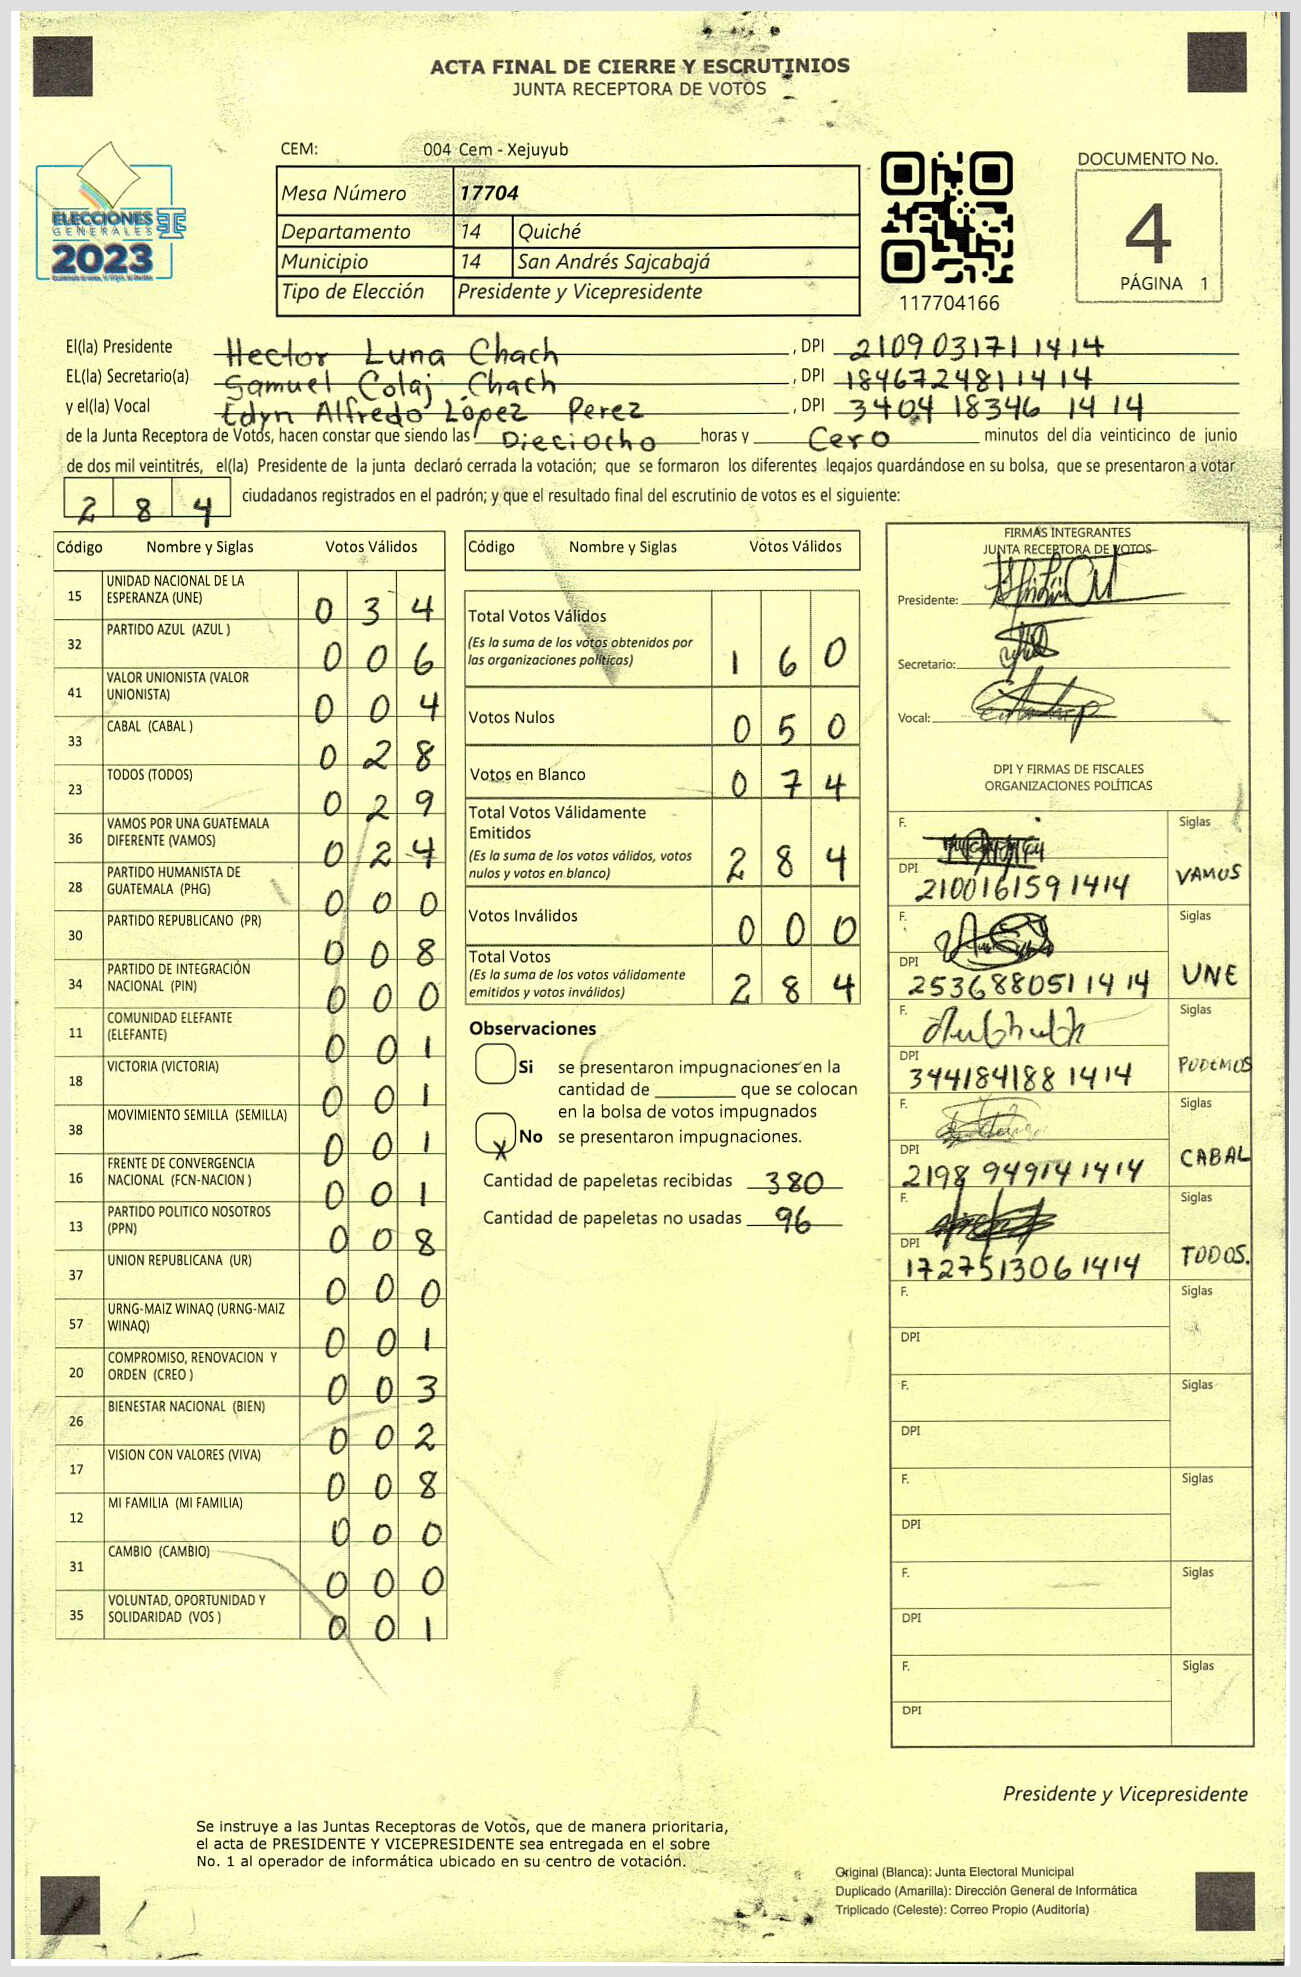 ACTA FINAL DE CIERRE Y ESCRUTINIOS
JUNTA RECEPTORA DE VOTOS
CEM: 004 Cem - Xejuyub
Mesa Número 17704
Departamento 14 Quiché
Municipio 14 San Andrés Sajcabajá
Tipo de Elección Presidente y Vicepresidente
ELECCIONES
GENERALES
2023
117704166
DOCUMENTO No.
4
PÁGINA 1
El(la) Presidente Hector Luna Chach , DPI 2109 03171 1414
EL(la) Secretario(a) Samuel Colaj Chach , DPI 1846724811414
y el(la) Vocal Edyn Alfredo López Perez , DPI 3404 18346 1414
de la Junta Receptora de Votos, hacen constar que siendo las Dieciocho horas y Cero minutos del día veinticinco de junio
de dos mil veintitrés, el(la) Presidente de la junta declaró cerrada la votación; que se formaron los diferentes legajos quardándose en su bolsa, que se presentaron a votar
2 8 4 ciudadanos registrados en el padrón; y que el resultado final del escrutinio de votos es el siguiente:
Código Nombre y Siglas Votos Válidos
15 UNIDAD NACIONAL DE LA ESPERANZA (UNE) 0 3 4
32 PARTIDO AZUL (AZUL ) 0 0 6
41 VALOR UNIONISTA (VALOR UNIONISTA) 0 0 4
33 CABAL (CABAL ) 0 2 8
23 TODOS (TODOS) 0 2 9
36 VAMOS POR UNA GUATEMALA DIFERENTE (VAMOS) 0 2 4
28 PARTIDO HUMANISTA DE GUATEMALA (PHG) 0 0 0
30 PARTIDO REPUBLICANO (PR) 0 0 8
34 PARTIDO DE INTEGRACIÓN NACIONAL (PIN) 0 0 0
11 COMUNIDAD ELEFANTE (ELEFANTE) 0 0 1
18 VICTORIA (VICTORIA) 0 0 1
38 MOVIMIENTO SEMILLA (SEMILLA) 0 0 1
16 FRENTE DE CONVERGENCIA NACIONAL (FCN-NACION ) 0 0 1
13 PARTIDO POLITICO NOSOTROS (PPN) 0 0 8
37 UNION REPUBLICANA (UR) 0 0 0
57 URNG-MAIZ WINAQ (URNG-MAIZ WINAQ) 0 0 1
20 COMPROMISO, RENOVACION Y ORDEN (CREO ) 0 0 3
26 BIENESTAR NACIONAL (BIEN) 0 0 2
17 VISION CON VALORES (VIVA) 0 0 8
12 MI FAMILIA (MI FAMILIA) 0 0 0
31 CAMBIO (CAMBIO) 0 0 0
35 VOLUNTAD, OPORTUNIDAD Y SOLIDARIDAD (VOS ) 0 0 1
Código Nombre y Siglas Votos Válidos
Total Votos Válidos 1 6 0
(Es la suma de los votos obtenidos por
las organizaciones políticas)
Votos Nulos 0 5 0
Votos en Blanco 0 7 4
Total Votos Válidamente
Emitidos 2 8 4
(Es la suma de los votos válidos, votos
nulos y votos en blanco)
Votos Inválidos 0 0 0
Total Votos 2 8 4
(Es la suma de los votos válidamente
emitidos y votos inválidos)
Observaciones
Si se presentaron impugnaciones en la
cantidad de ________ que se colocan
en la bolsa de votos impugnados
X No se presentaron impugnaciones.
Cantidad de papeletas recibidas 380
Cantidad de papeletas no usadas 96
FIRMAS INTEGRANTES
JUNTA RECEPTORA DE VOTOS
Presidente:
Secretario:
Vocal:
DPI Y FIRMAS DE FISCALES
ORGANIZACIONES POLÍTICAS
F. Siglas
DPI 2100161591414 VAMOS
F. Siglas
DPI 2536880511414 UNE
F. Siglas
DPI 3441841881414 PODEMOS
F. Siglas
DPI 2198 949141414 CABAL
F. Siglas
DPI 1727513061414 TODOS.
F. Siglas
DPI
F. Siglas
DPI
F. Siglas
DPI
F. Siglas
DPI
F. Siglas
DPI
Presidente y Vicepresidente
Se instruye a las Juntas Receptoras de Votos, que de manera prioritaria,
el acta de PRESIDENTE Y VICEPRESIDENTE sea entregada en el sobre
No. 1 al operador de informática ubicado en su centro de votación.
Original (Blanca): Junta Electoral Municipal
Duplicado (Amarilla): Dirección General de Informática
Triplicado (Celeste): Correo Propio (Auditoría)